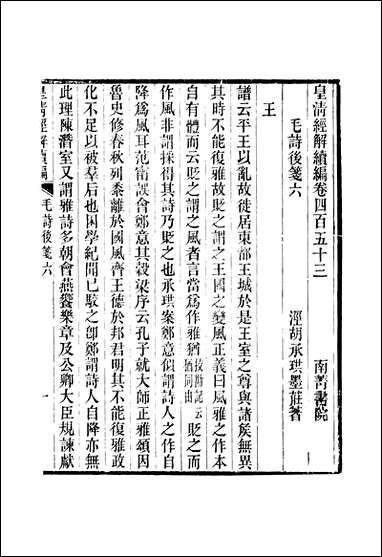 皇清經解續編卷四百五十三　南菁書院
毛詩後箋六　涇胡承珙墨莊著
王
譜云平王以亂故徙居東都王城於是王室之尊與諸矦無異
其時不能復雅故貶之謂之王國之變風正義曰風雅之作本
自有體而云貶之謂之風者言當爲作雅猶按附記云猶同由貶之而
作風非謂採得其詩乃貶之也承珙案鄭意似謂詩人之作自
降爲風耳范甯誤會鄭意其穀梁序云孔子就大師正雅頌因
魯史修春秋列黍離於國風齊王德於邦君明其不能復雅政
化不足以被羣后也困學紀聞已駮之卽鄭謂詩人自降亦無
此理陳潛室又謂雅詩多朝會燕饗樂章及公卿大臣規諫獻
皇清經解續編　毛詩後箋六　一